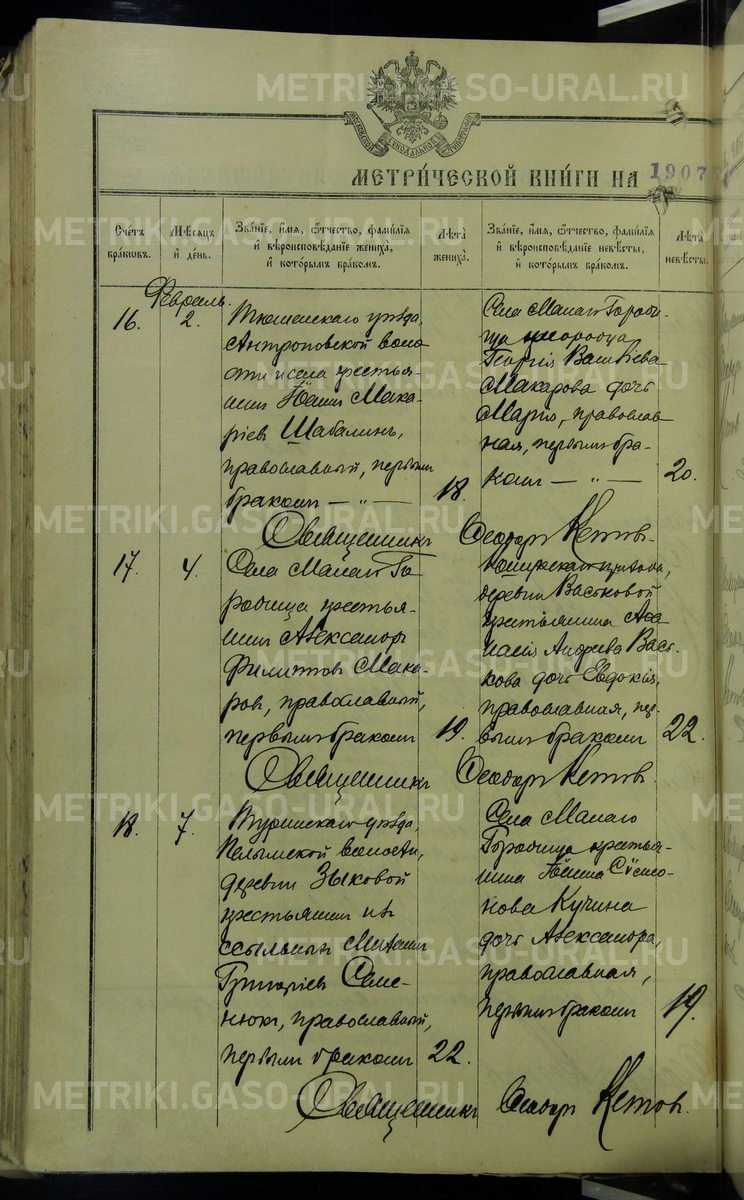 METRIKI.GASO-URAL.RU
МОСКОВСКОЙ СѴНОДАЛЬНОЙ ТИПОГРАФІИ
МЕТРИ́ЧЕСКОЙ КНИ́ГИ НА 1907
Сче́тъ бра́ковъ.
Мѣ́сѧцъ и҆ де́нь.
Зва́нїе, и҆́мѧ, ѻ҆́тчество, фами́лїѧ и҆ вѣроисповѣ́данїе жениха̀, и҆ кото́рымъ бра́комъ.
Лѣ́та жениха̀.
Зва́нїе, и҆́мѧ, ѻ҆́тчество, фами́лїѧ и҆ вѣроисповѣ́данїе невѣ́сты, и҆ кото́рымъ бра́комъ.
Лѣ́та невѣ́сты.
Февраль.
16.
2.
Тюменскаго уѣзда,
Антроповской воло
сти и села крестья-
нинъ Іоаннъ Мака-
ріевъ Шабалинъ,
православный, первымъ
бракомъ — " —
18.
Села Малаго Городи-
ща
Георгія Васильева
Макарова дочь
Марія, православ
ная, первымъ бра-
комъ — " —
20.
Священникъ Ѳеодоръ Кетовъ.
17.
4.
Села Малаго Го
родища крестья-
нинъ Александръ
Филиповъ Мака-
ровъ, православный,
первымъ бракомъ
19.
деревни Васьковой
крестьянина Аѳа
насія Андреева Вась-
кова дочь Евдокія,
православная, пер-
вымъ бракомъ
22.
Священникъ Ѳеодоръ Кетовъ.
18.
7.
Туринскаго уѣзда,
Пелымской волости,
деревни Зыковой
крестьянинъ изъ
ссыльныхъ Михаилъ
Григоріевъ Саме-
нюкъ, православный,
первымъ бракомъ
22.
Села Малаго
Городища крестья-
нина Іоанна Сѵмео-
нова Кучина
дочь Александра,
православная,
первымъ бракомъ
19.
Священникъ Ѳеодоръ Кетовъ.